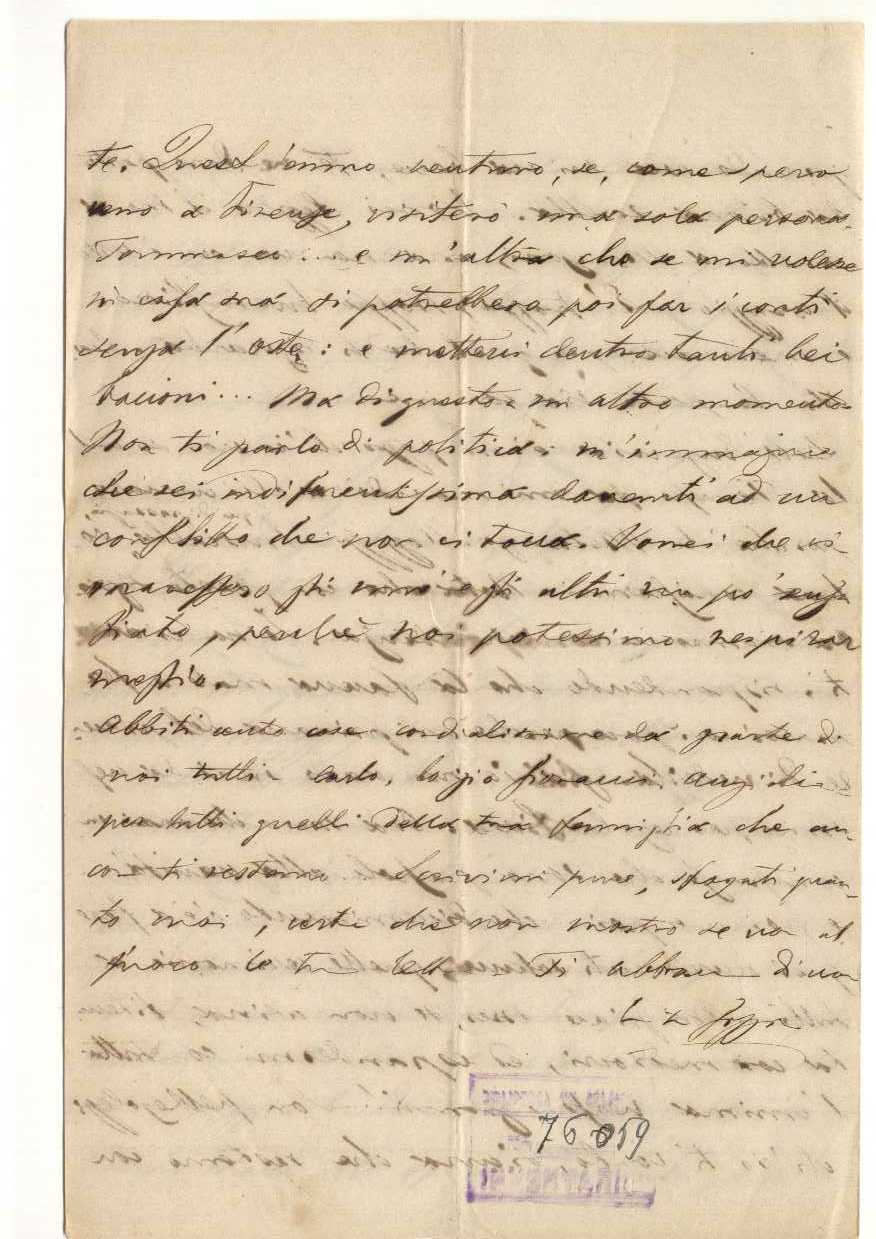 te. Quest'anno venturo, se, come spero
verrò a Firenze, visiterò una sola persona.
Tommaseo... e un'altra che se mi volesse
in casa sua si potrebbero poi far i conti
senza l'oste: e mettervi dentro tanti bei
bacioni... Ma di questo un altro momento.
Non ti parlo di politica: m'immagino
che sei indifferentissima davanti ad un
conflitto che non ci tocca. Vorrei che si
gli uni e gli altri un po'
fiato, perchè noi potessimo respirar
meglio
Abbiti cento cose cordialissime da parte di
noi tutti Carlo,
per tutti quelli della tua famiglia che an-
cor ti restano. Scrivimi pure, sfogati quan-
to vuoi, certa che non mostro se non al
fuoco le tue Ti abbraccio di
La tua
76059